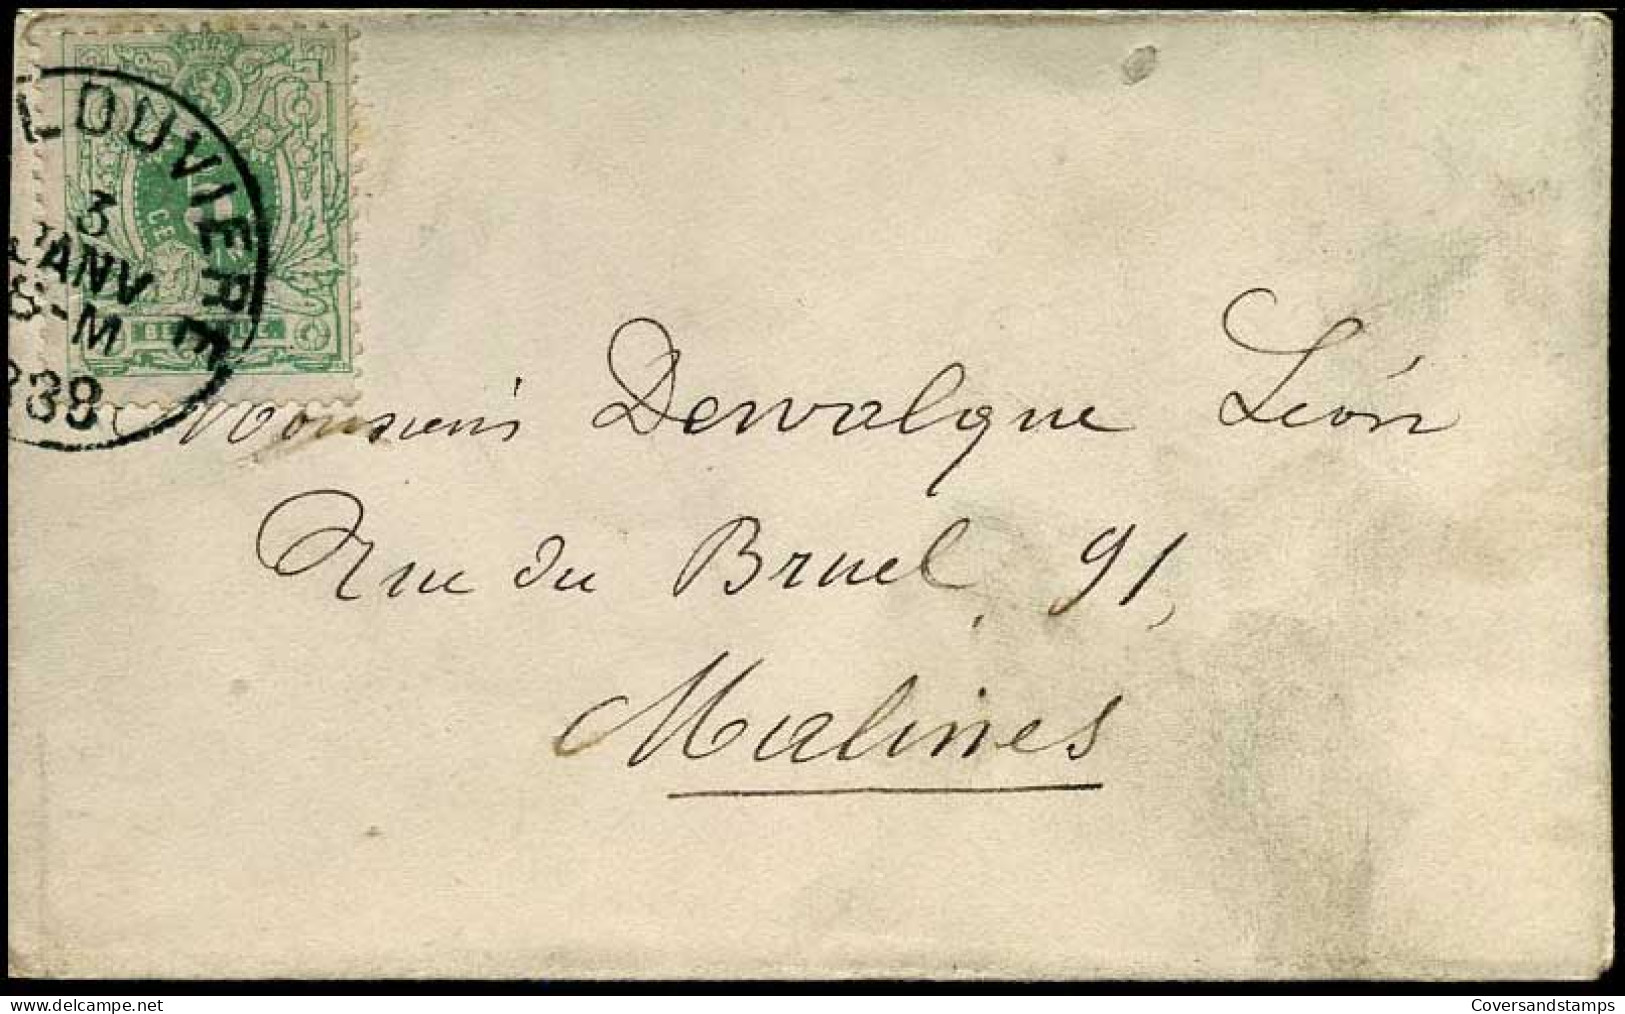 LOUVIERE
3
JANV
8-M
CE
BELGIQUE
Monsieur Dewalque Léon
Rue du Bruel, 91,
Malines
www.delcampe.net
Coversandstamps